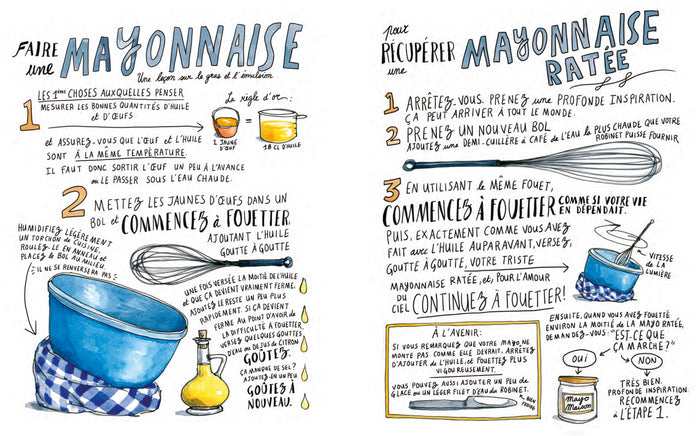 FAIRE
une
MAYONNAISE
Une leçon sur le gras et l'émulsion
1
LES 1ères CHOSES AUXQUELLES PENSER
MESURER LES BONNES QUANTITÉS D'HUILE
ET D'ŒUFS
La règle d'or:
1 JAUNE
D'ŒUF
=
18 CL D'HUILE
ET ASSUREZ-VOUS QUE L'ŒUF ET L'HUILE
SONT À LA MÊME TEMPÉRATURE.
IL FAUT DONC SORTIR L'ŒUF UN PEU À L'AVANCE
OU LE PASSER SOUS L'EAU CHAUDE.
2
METTEZ LES JAUNES D'ŒUFS DANS UN
BOL et COMMENCEZ à FOUETTER,
AJOUTANT L'HUILE
GOUTTE À GOUTTE
HUMIDIFIEZ LÉGÈREMENT
UN TORCHON de CUISINE,
ROULEZ-LE EN ANNEAU et
PLACEZ le BOL AU MILIEU.
IL NE SE RENVERSERA PAS
UNE FOIS VERSÉE LA MOITIÉ DE L'HUILE
et QUE ÇA DEVIENT VRAIMENT FERME,
AJOUTEZ LE RESTE UN PEU PLUS
RAPIDEMENT. SI ÇA DEVIENT
FERME AU POINT D'AVOIR de
LA DIFFICULTÉ À FOUETTER,
VERSEZ QUELQUES GOUTTES
D'EAU OU DE JUS de CITRON
GOÛTEZ.
ÇA MANQUE DE SEL?
AJOUTEZ-EN UN PEU
GOÛTEZ À
NOUVEAU.
pour
RÉCUPÉRER
une
MAYONNAISE
RATÉE
1 ARRÊTEZ-VOUS. PRENEZ une PROFONDE INSPIRATION.
ÇA PEUT ARRIVER À TOUT LE MONDE.
2 PRENEZ UN NOUVEAU BOL
AJOUTEZ une DEMI-CUILLÈRE À CAFÉ DE L'EAU LA PLUS CHAUDE QUE VOTRE
ROBINET PUISSE FOURNIR
3 EN UTILISANT le MÊME FOUET,
COMMENCEZ À FOUETTER COMME SI VOTRE VIE
EN DÉPENDAIT.
PUIS, EXACTEMENT COMME VOUS AVEZ
FAIT avec L'HUILE AUPARAVANT, VERSEZ,
GOUTTE À GOUTTE, VOTRE TRISTE
MAYONNAISE RATÉE, et, POUR L'AMOUR
DU CIEL CONTINUEZ À FOUETTER!
VITESSE
DE LA
LUMIÈRE
À L'AVENIR:
SI VOUS REMARQUEZ QUE VOTRE MAYO NE
MONTE PAS COMME ELLE DEVRAIT, ARRÊTEZ
D'AJOUTER DE L'HUILE, et FOUETTEZ PLUS
VIGOUREUSEMENT.
VOUS POUVEZ AUSSI AJOUTER UN PEU DE
GLACE OU UN LÉGER FILET D'EAU DU ROBINET.
BIEN
FROIDE
ENSUITE, QUAND VOUS AVEZ FOUETTÉ
ENVIRON LA MOITIÉ DE LA MAYO RATÉE,
DEMANDEZ-VOUS: "EST-CE QUE
ÇA MARCHE?"
OUI
NON
mayo
Maison
TRÈS BIEN.
PROFONDE INSPIRATION.
RECOMMENCEZ
À L'ÉTAPE 1.